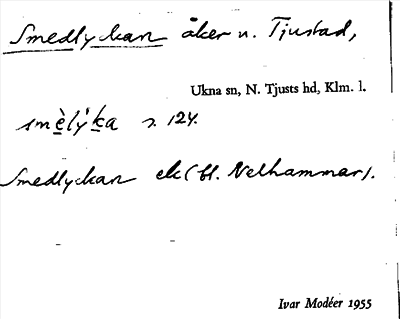 Smedlyckan åker u. Tjustad,
Ukna sn, N. Tjusts hd, Klm. l.
smè̱lýḵa s. 124.
Smedlyckan ek (bl. Nelhammar).
Ivar Modéer 1955